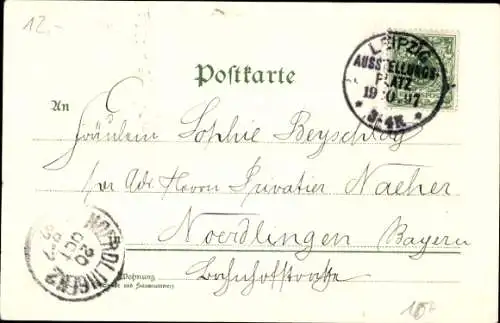 12.-
LEIPZIG
AUSSTELLUNGS-
PLATZ
19 10.97
* 3-4N. *
Postkarte
An
Fräulein Sophie Beyschlag
per Adr. Herrn Privatier Naeher
Noerdlingen Bayern
Wohnung
Bahnhofstraße
(Straße und Hausnummer)
NOERDLINGEN 2
20
OCT
97